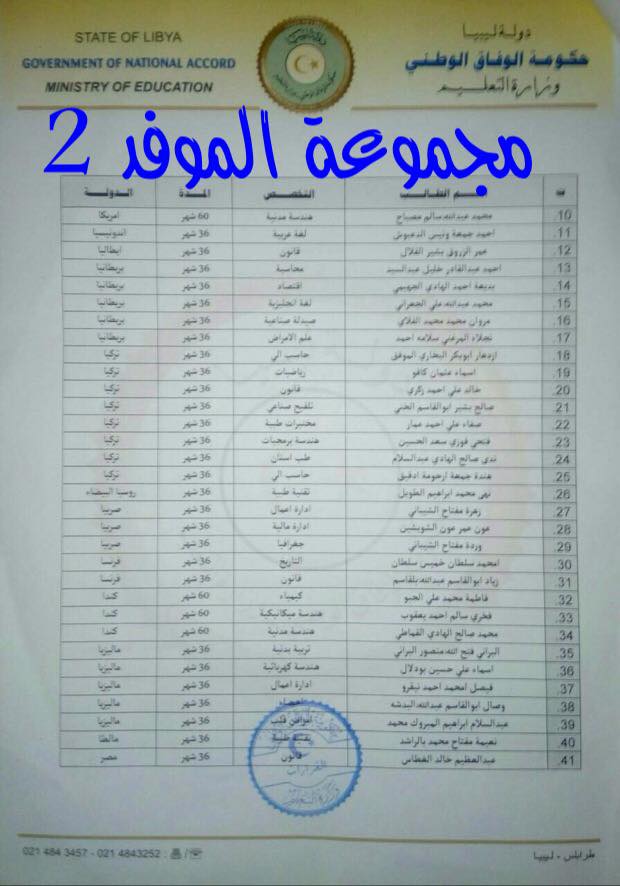 STATE OF LIBYA
GOVERNMENT OF NATIONAL ACCORD
MINISTRY OF EDUCATION
دولة ليبيا
حكومة الوفاق الوطني
وزارة التعليم
مجموعة الموفد 2
اسم الطالب التخصص المدة الدولة
10. محمد عبدالله سالم مصباح هندسة مدنية 60 شهر امريكا
11. احمد جمعة ونيس الدعبوش لغة عربية 36 شهر اندونيسيا
12. عمر الزروق بشير الفلال قانون 36 شهر ايطاليا
13. احمد عبدالقادر خليل عبدالسيد محاسبة 36 شهر بريطانيا
14. بديعة احمد الهادي الجهيمي اقتصاد 36 شهر بريطانيا
15. محمد عبدالله علي الجعراني لغة انجليزية 36 شهر بريطانيا
16. مروان محمد محمد الفلاي صيدلة صناعية 36 شهر بريطانيا
17. نجلاء المرغني سلامه احمد علم الامراض 36 شهر بريطانيا
18. ازدهار ابوبكر البخاري الموفق حاسب الي 36 شهر تركيا
19. اسماء عثمان كافو رياضيات 36 شهر تركيا
20. خالد علي احمد زكري قانون 36 شهر تركيا
21. صالح بشير ابوالقاسم الختي تلقيح صناعي 36 شهر تركيا
22. صفاء علي احمد عمار مختبرات طبية 36 شهر تركيا
23. فتحي فوزي سعد الحسين هندسة برمجيات 36 شهر تركيا
24. ندى صالح الهادي عبدالسلام طب اسنان 36 شهر تركيا
25. هندة جمعة ارحومة ادقيق حاسب الي 36 شهر تركيا
26. نهى محمد ابراهيم الطويل تقنية طبية 36 شهر روسيا البيضاء
27. زهرة مفتاح الشيباني ادارة اعمال 36 شهر صربيا
28. عون عمر عون الشويشين ادارة مالية 36 شهر صربيا
29. وردة مفتاح الشيباني جغرافيا 36 شهر صربيا
30. امحمد سلطان خميس سلطان التاريخ 36 شهر فرنسا
31. زياد ابوالقاسم عبدالله بلقاسم قانون 36 شهر فرنسا
32. فاطمة محمد علي الجبو كيمياء 60 شهر كندا
33. فخري سالم احمد يعقوب هندسة ميكانيكية 60 شهر كندا
34. محمد صالح الهادي القماطي هندسة مدنية 60 شهر كندا
35. البراني فتح الله منصور البراني تربية بدنية 36 شهر ماليزيا
36. اسماء علي حسين بودلال هندسة كهربائية 36 شهر ماليزيا
37. فيصل امحمد احمد نيقرو ادارة اعمال 36 شهر ماليزيا
38. وصال ابوالقاسم عبدالله البدشه 36 شهر ماليزيا
39. عبدالسلام ابراهيم المبروك محمد امراض قلب 36 شهر ماليزيا
40. نعيمة مفتاح محمد بالراشد تقنية طبية 36 شهر مالطا
41. عبدالعظيم خالد الغطاس قانون 36 شهر مصر
021 484 3457 - 021 4843252 :
طرابلس - ليبيا